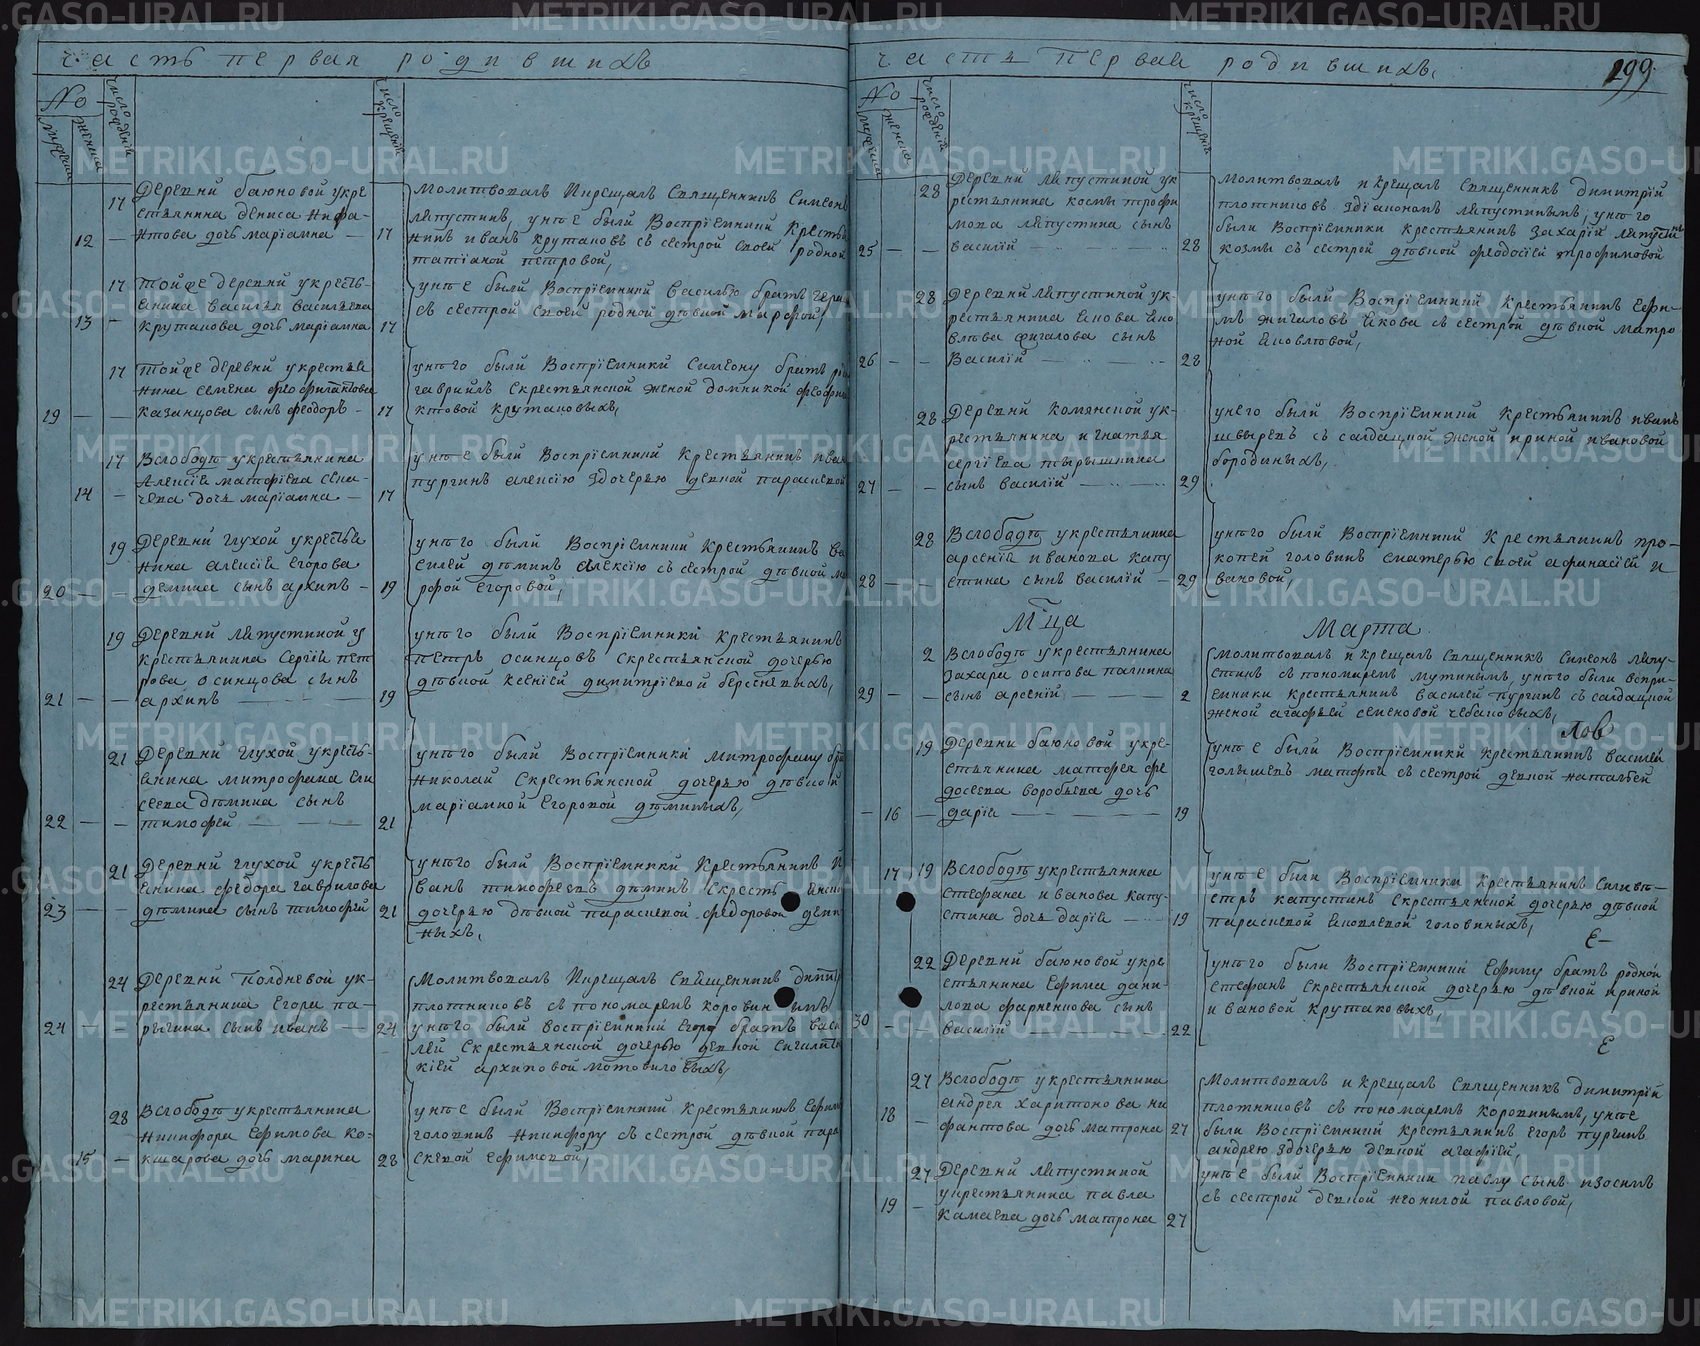 Часть первая родившихъ
No
мужеска
женска
число рожденій
число крещеній
17
Деревни баюновой укре
стьянина дениса нифа-
12 — нтова дочь маріамна — 17
Молитвовалъ икрещалъ Священникъ Симеонъ
ляпустинъ, унъе были Воспріемники Крестья
нинъ иванъ крутаковъ съ сестрой своей родной
татіаной петровой,
17 тойже деревни укресть-
янина василья васильева
13 — крутакова дочь маріамна 17
унъе были Воспріемники василью братъ
съ сестрой своей родной дѣвкой марфой,
17 тойже деревни укрестья
нина семена феофилактова
19 — — казанцова сынъ феодоръ — 17
унъго были Воспріемники Симеону братъ
гаврийлъ скрестьянской женой домникой
ктовой крутаковыхъ,
17 Вслободѣ укрестьянина
Алексія матфіева сена-
14 — чева дочь маріамна — 17
унъе были Воспріемники Крестьянинъ иван
пургинъ алексію здочерью девкой параскевой
19 Деревни глухой укрестья
нина алексія егорова
20 — — демина сынъ архипъ — 19
унъго были Воспріемники Крестьянинъ ва
силей дѣминъ алексію съ сестрой дѣвкой ма
рфой егоровой,
19 Деревни ляпустиной у
крестьянина Сергія пет
рова осинцова сынъ
21 — — архипъ — 19
унъго были Воспріемники крестьянинъ
петръ осинцовъ скрестьянской дочерью
дѣвкой ксеніей димитріевой берсеневыхъ,
21 Деревни глухой укресть-
янина митрофана
сеева дѣмина сынъ
22 — — тимофей — 21
унъго были Воспріемники митрофану бра
николай скрестьянской дочерью дѣвкой
маріамной егоровой дѣминыхъ,
21 Деревни глухой укресть
янина федора гаврилова
23 — — дѣмина сынъ тимофей 21
унъго были Воспріемники Крестьянинъ и
ванъ тимофеевъ дѣминъ скресть янско
дочерью дѣвкой параскевой федоровой деми
ныхъ,
24 Деревни полдневой ук-
рестьянина егора па-
24 — рыгина сынъ иванъ — 24
Молитвовалъ икрещалъ Священникъ димит
плотниковъ съ пономаремъ коровин ымъ
унъго были воспріемники егору братъ васи
лей скрестьянской дочерью девкой
кіей архиповой мотовиловыхъ,
28 Вслободѣ укрестьянина
никифора ефимова ко-
15 — кшарова дочь марина 28
унъе были Воспріемники крестьянинъ ефим
головинъ никифору съ сестрой дѣвкой пара
скевой ефимовой,
Часть первая родившихъ,
199
No
мужеска
женска
число рожденій
число крещеній
28 Деревни ляпустиной ук
рестьянина космы трофи
мова ляпустина сынъ
25 — — василій — 28
Молитвовалъ и крещалъ Священникъ димитрій
плотниковъ здіакономъ ляпустинымъ, унъго
были Воспріемники крестьянинъ захарій ляпустинъ
козмы съ сестрой дѣвкой феодосіей трофимовой
28 Деревни ляпустиной ук-
рестьянина якова яко
влева жигалова сынъ
26 — — Василій — 28
унъго были Воспріемники крестьянинъ ефи-
мъ жигаловъ якова съ сестрой дѣвкой матро
ной яковлевой,
28 Деревни комянской ук-
рестьянина игнатья
сергіева тырышкина
27 — — сынъ василій — 29
унего были Воспріемники крестьянинъ иванъ
швыревъ съ салдацкой женой ириной ивановой
бородиныхъ,
28 Вслободѣ укрестьянина
арсенія иванова капу
28 — стина сынъ василій — 29
унъго были Воспріемники Крестьянинъ про-
копей головинъ сматерью своей афанасіей и
вановой,
Мца Марта
2 Вслободѣ укрестьянина
захара осипова палкина
29 — — сынъ арсеній — 2
Молитвовалъ и крещалъ Священникъ Симеонъ ляпу-
стинъ съ пономаремъ мутинымъ, унъго были воспри-
емники крестьянинъ василей пургинъ съ салдацкой
женой агафьей семеновой чебаковыхъ,
Лов
19 Деревни баюновой укре-
стьянина матфея фе
досеева воробьева дочь
— 16 — дарія — 19
унъе были Воспріемники крестьянинъ василей
голышевъ матфѣя съ сестрой девкой натальей
17 19 Вслободѣ укрестьянина
стефана иванова капу-
стина дочь дарія — 19
унъе были Воспріемники крестьянинъ
стръ капустинъ скрестьянской дочерью дѣвкой
параскевой яковлевой головиныхъ,
Е—
22 Деревни баюновой укре
стьянина ефима дани-
лова фарненкова сынъ
30 — — василій — 22
унъго были Воспріемники ефиму братъ родной
стефанъ скрестьянской дочерью дѣвкой ириной
ивановой крутаковыхъ,
Е
27 Вслободѣ укрестьянина
андрея харитонова ни
18 — фантова дочь матрона 27
Молитвовалъ и крещалъ Священникъ димитрій
плотниковъ съ пономаремъ коровинымъ, унъе
были Воспріемники крестьянинъ егоръ пургинъ
андрею здочерью девкой агафіей,
27 Деревни ляпустиной
укрестьянина павла
19 — камаева дочь матрона 27
унъе были Воспріемники павлу сынъ изосимъ
съ сестрой девкой неонилой павловой,